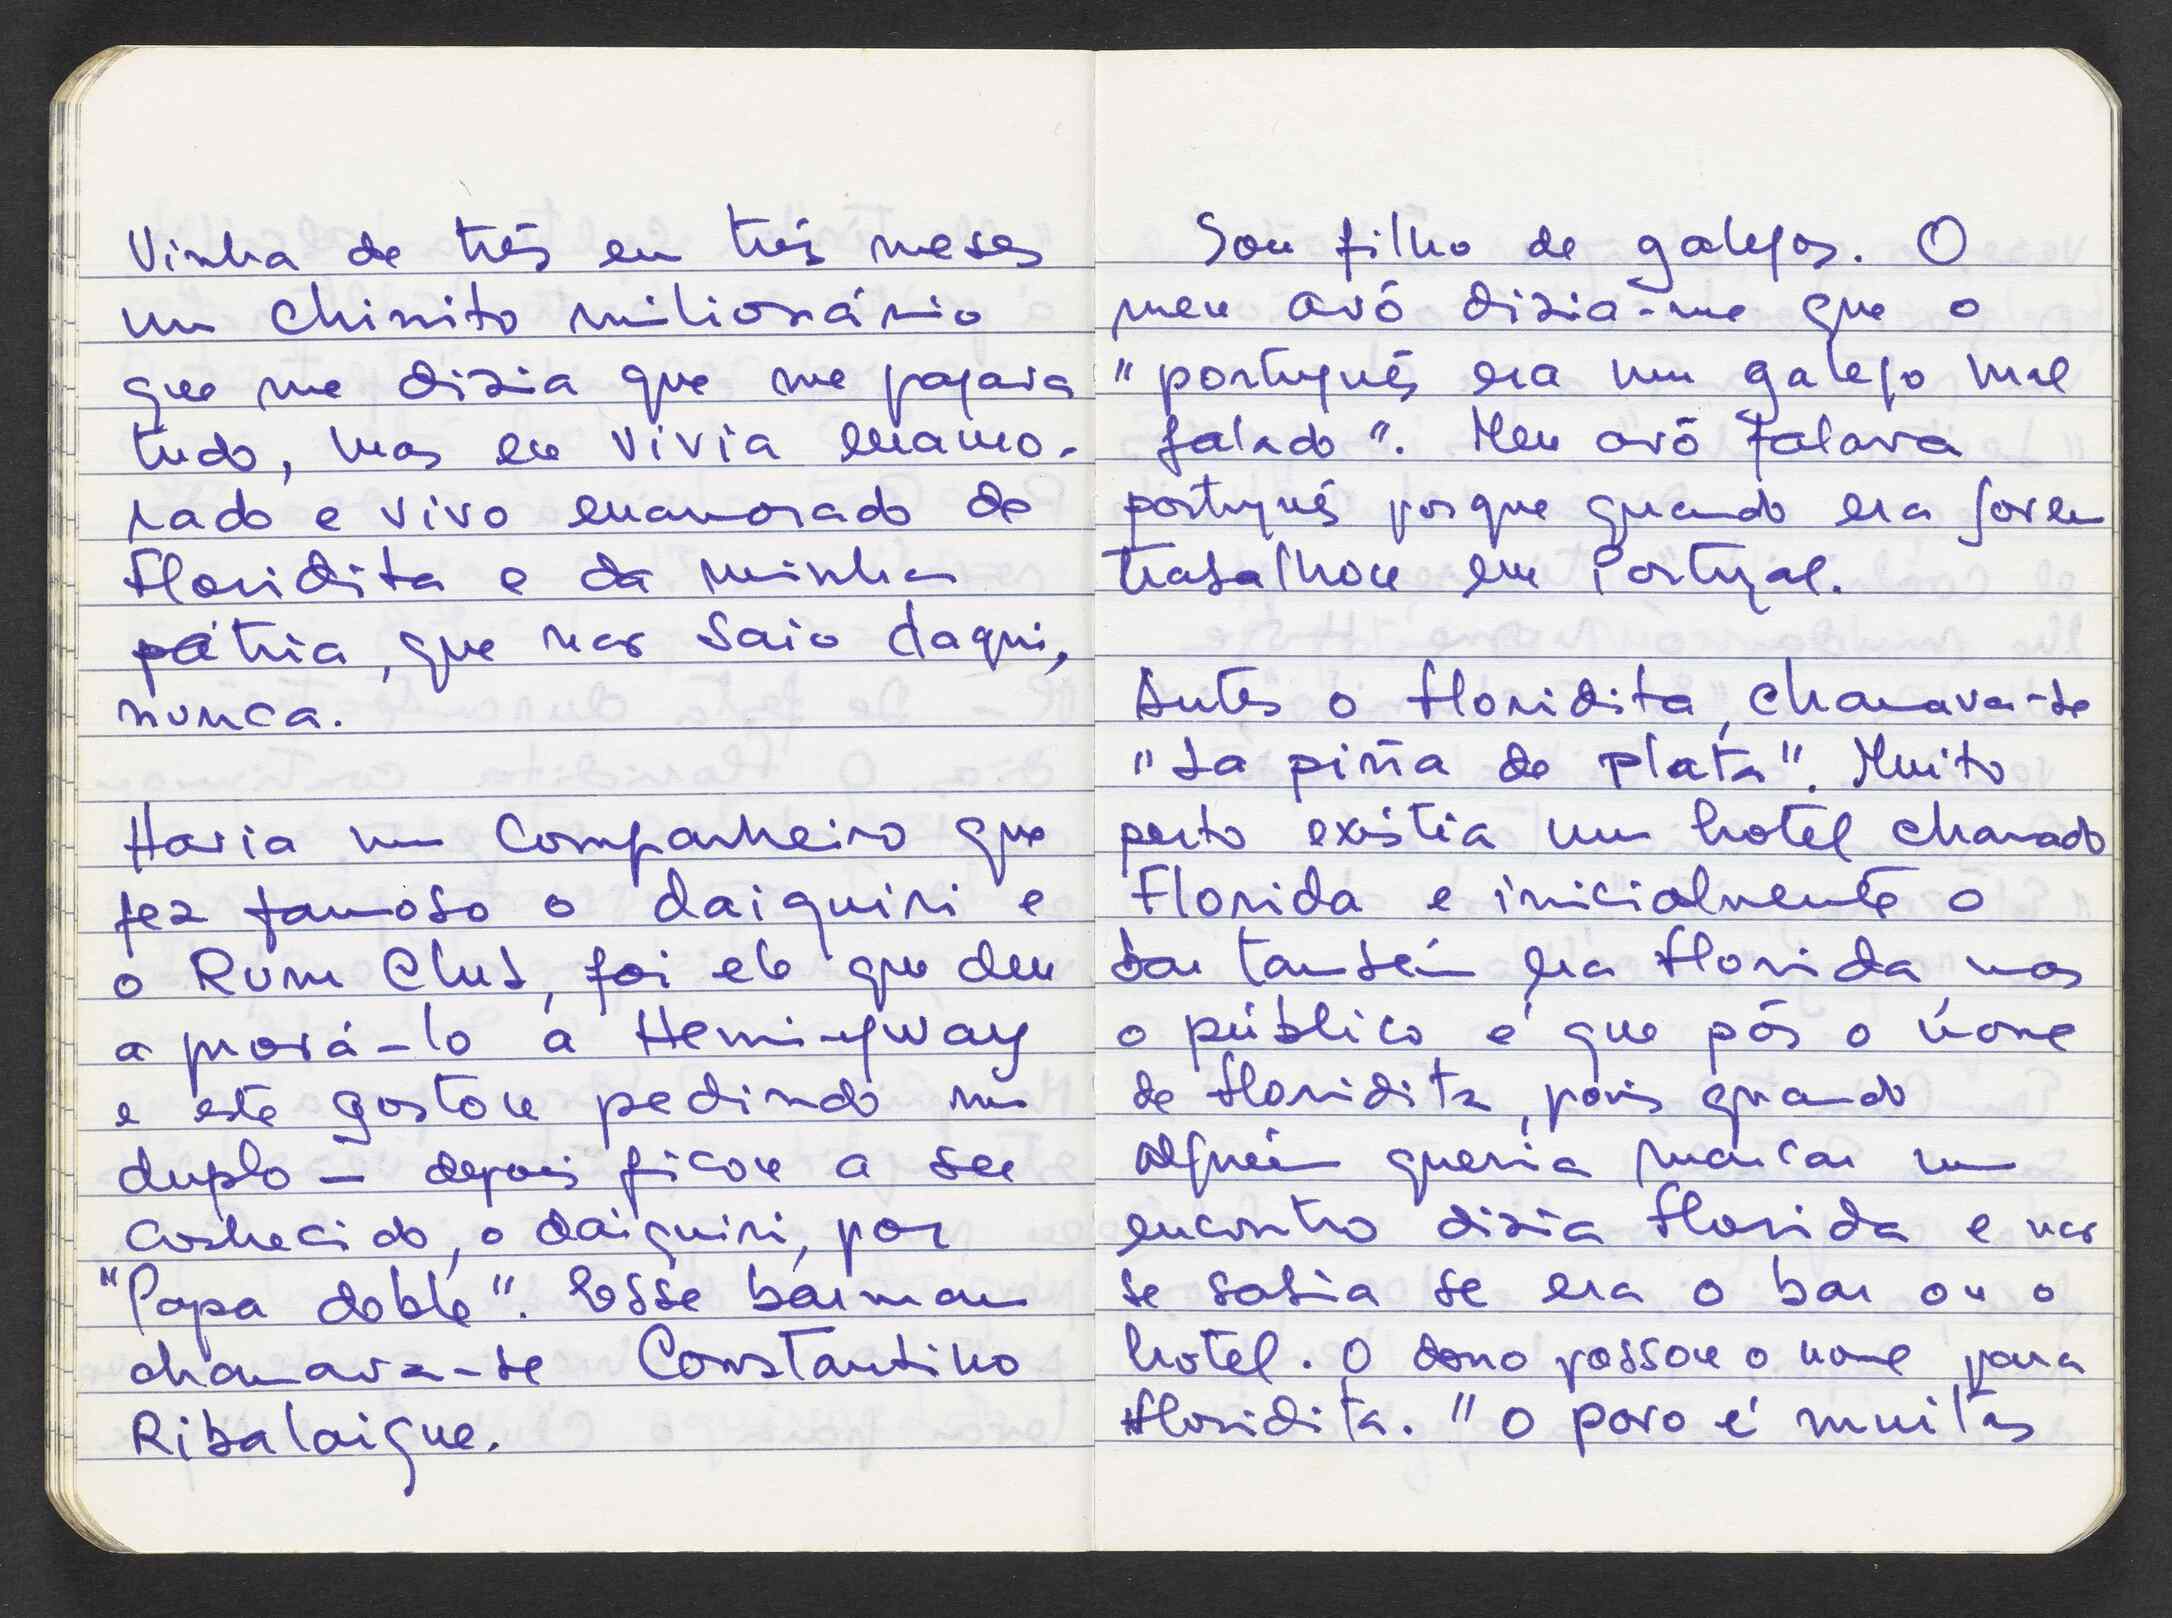 Vinha de três em três meses
um chinito milionário
que me dizia que me pagava
tudo, mas eu vivia enamo-
rado e vivo enamorado do
Floridita e da minha
pátria, que não saio daqui,
nunca.
Havia um companheiro que
fez famoso o daiquiri e
o Rum Club, foi ele que deu
a prová-lo a Hemingway
e este gostou pedindo um
duplo — depois ficou a ser
conhecido, o daiquiri, por
"Papa doble". Esse barman
chamava-se Constantino
Ribalaigue.
Sou filho de galegos. O
meu avô dizia-me que o
"português era um galego mal
falado". Meu avô falava
português porque quando era jovem
trabalhou em Portugal.
Antes o Floridita, chamava-se
"La piña de plata". Muito
perto existia um hotel chamado
Florida e inicialmente o
bar também era Florida, mas
o público é que pôs o nome
de Floridita, pois quando
alguém queria marcar um
encontro dizia Florida e não
se sabia se era o bar ou o
hotel. O dono passou o nome para
Floridita. "O povo é muitas